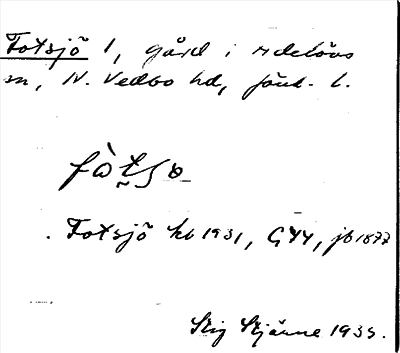 Fotsjö 1, gård i Adelövs
sn, N. Vedbo hd, Jönk. l.
fòtʃɵ
Fotsjö kb 1931, GEK, jb 1877
Stig Stjärne 1935.